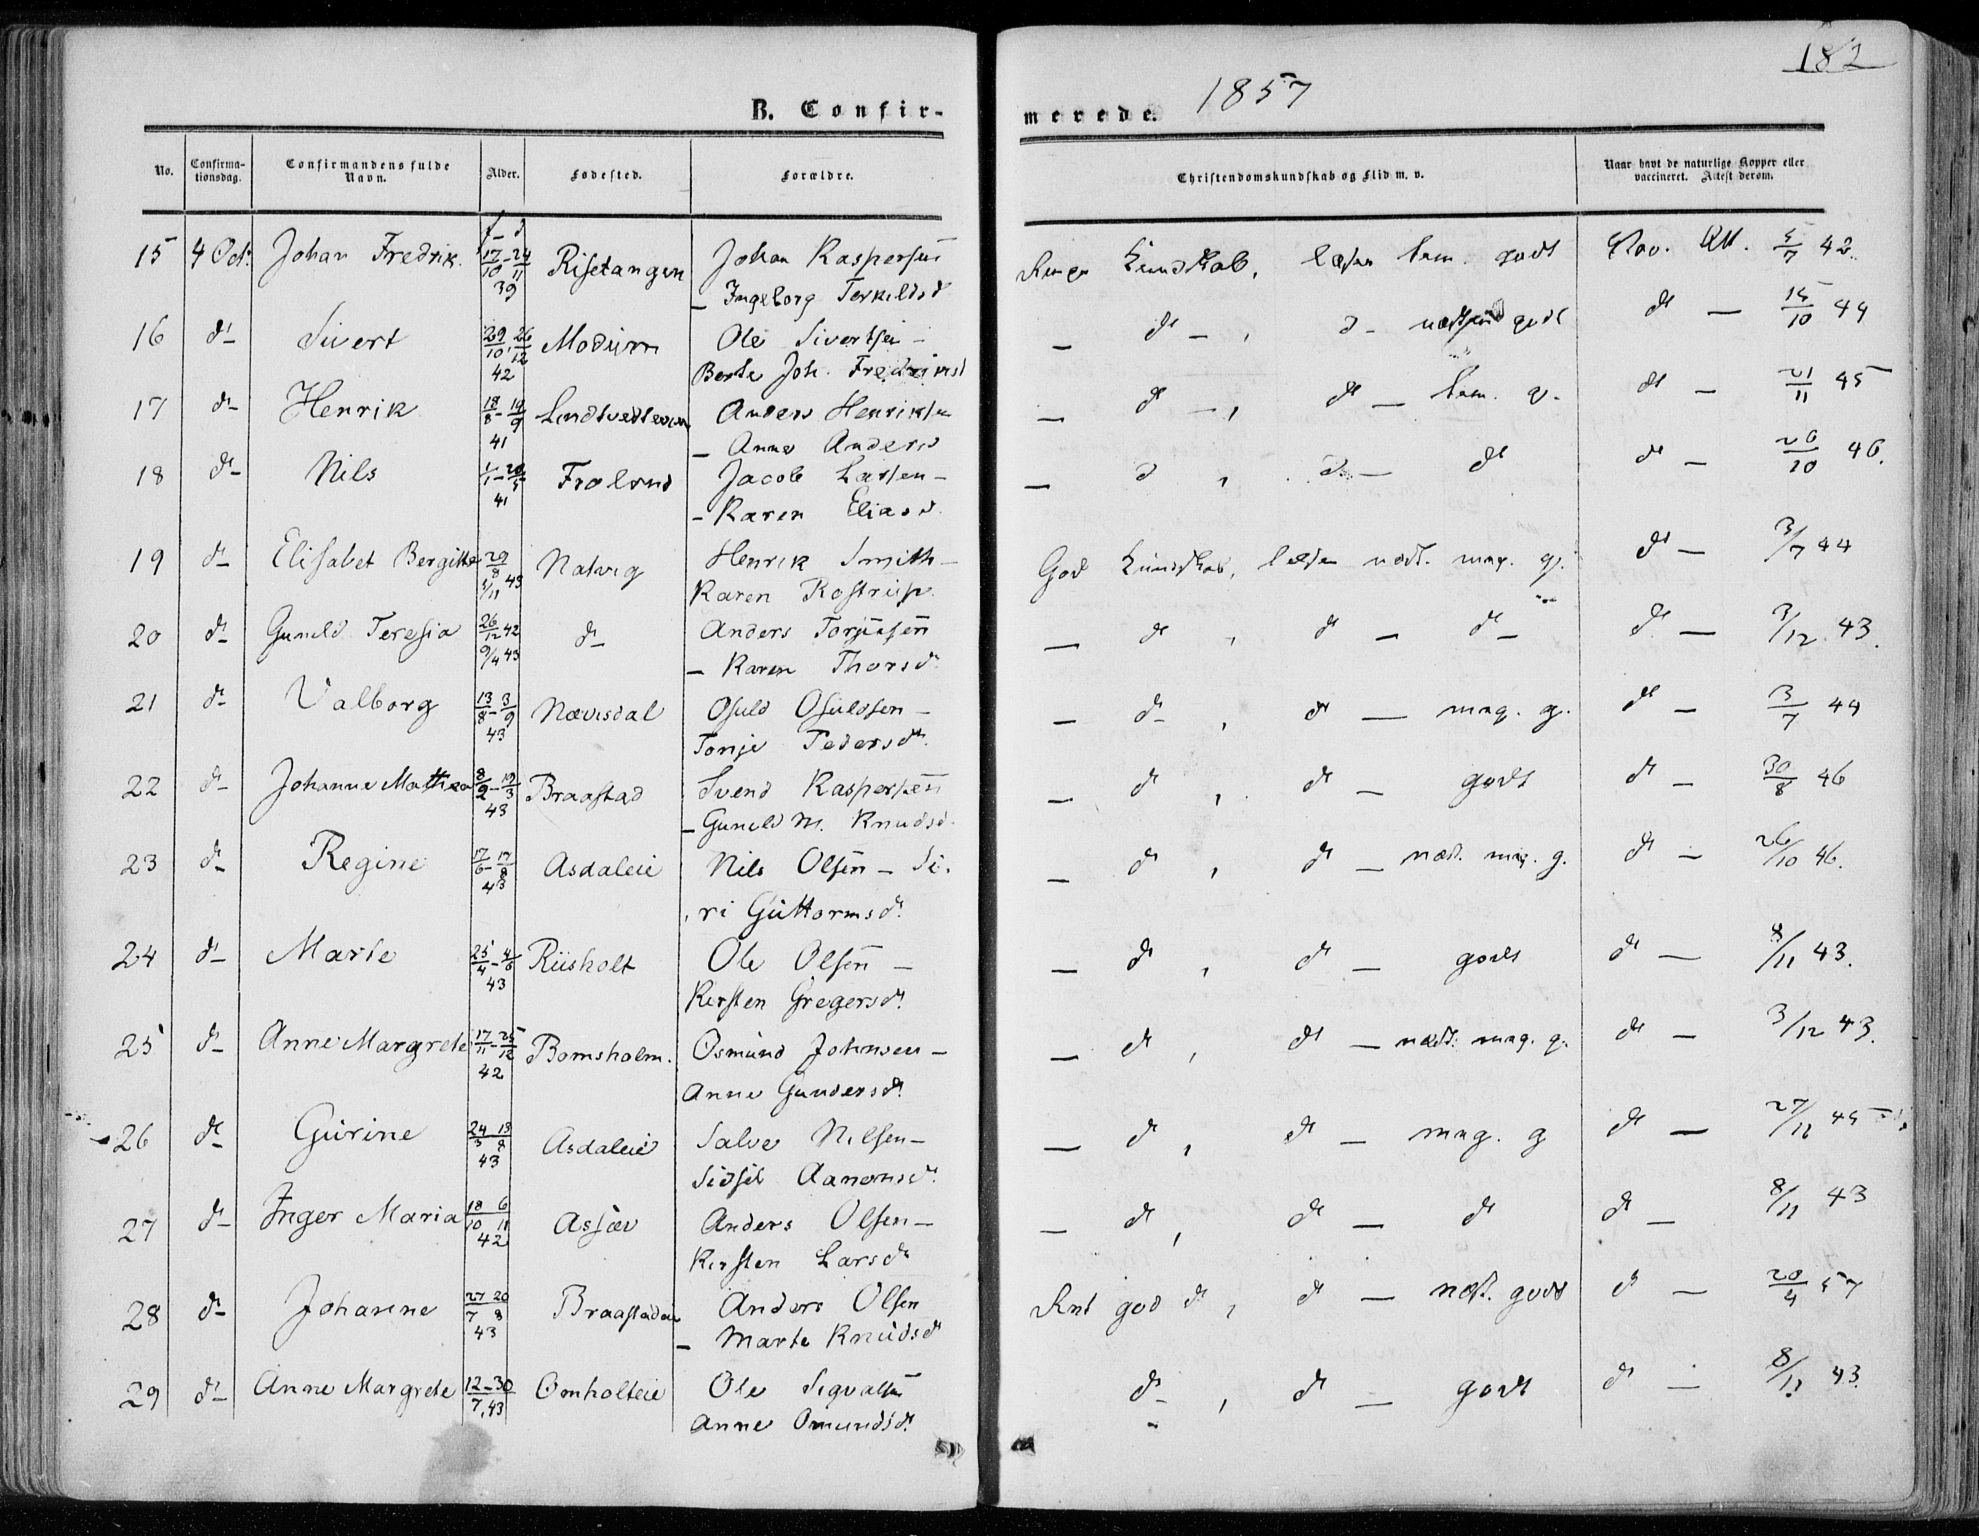 182
B. Confir-
merede.
1857
No.
Confirma-
tionsdag.
Confirmandens fulde
Navn.
Alder.
Fødested.
Forældre.
Christendomskundskab og Flid m. v.
Naar havt de naturlige Kopper eller
vaccineret. Attest derom.
f - d
15 4 Oct. Johan Fredrik 17/10 - 24/11 39 Risetangen Johan Kaspersen
- Ingeborg Terkildsd
Kundskab, læser godt 5/7 42.
16 dº Sivert 29/10, 26/12 42 Modum Ole Sivertsen -
Berte Joh. Fredriksd
- dº -, d - godt dº - 15/10 44
17 dº Henrik 18/8 - 19/9 41 Anders Henriksen
- Anne Andersd
- dº -, dº - g. dº - 21/11 45
18 dº Nils 41 Jacob Larsen -
- Karen Eliasd.
- d , d. - dº dº - 26/10 46.
19 dº Elisabet Bergitte 29/8 1/11 43 Natvig Henrik Smith -
Karen Rostrup.
God Kundskab, læser nost. mag. g. dº - 3/7 44
20 dº Guneld Teresia 26/12 42 9/4 43 dº Anders Torjusen
- Karen Thorsdr
- dº , dº - dº - dº - 3/12 43.
21 dº Valborg 13/8 - 3/9 43 Nævisdal Osuld Osuldsen -
Tonje Pedersdr.
- dº , dº - mag. g. dº - 3/7 44
22 dº Johanne Mathea 8/2 - 19/3 43 Braastad Svend Kaspersen
- Guneld M. Knudsd.
- dº , dº - godt dº - 30/8 46
23 dº Regine 17/6 - 17/8 43 Asdaleie Nils Olsen - Si-
ri Guttormsdr.
- dº , dº - næst. mag. g. dº - 26/10 46.
24 dº Marte 25/4 - 4/6 43 Riisholt Ole Olsen -
Kirsten Gregersdr.
- dº , dº - godt dº - 8/11 43.
25 dº Anne Margrete 17/11 - 25/12 42 Bomsholm. Osmund Johnsen -
Anne Gundersdr.
- dº , dº - næst. mag. g. dº - 3/12 43.
26 dº Gurine 24 13 / 5 8 43 Asdaleie Salve Nilsen -
Sidsel Aanonsdr
- dº , dº - mag. g dº - 27/11 45
27 dº Inger Maria 18 6 / 10 11 42 Asfær Anders Olsen -
Kirsten Larsdr
- dº , dº - dº dº - 8/11 43
28 dº Johanne 27 20 / 7 8 43 Anders Olsen
- Marte Knudsdr
god dº , dº - næst. godt dº - 20/4 57
29 dº Anne Margrete 12 - 30 / 7, 43 Omholteie Ole
Anne Omundsdr.
dº , dº - godt dº - 8/11 43.